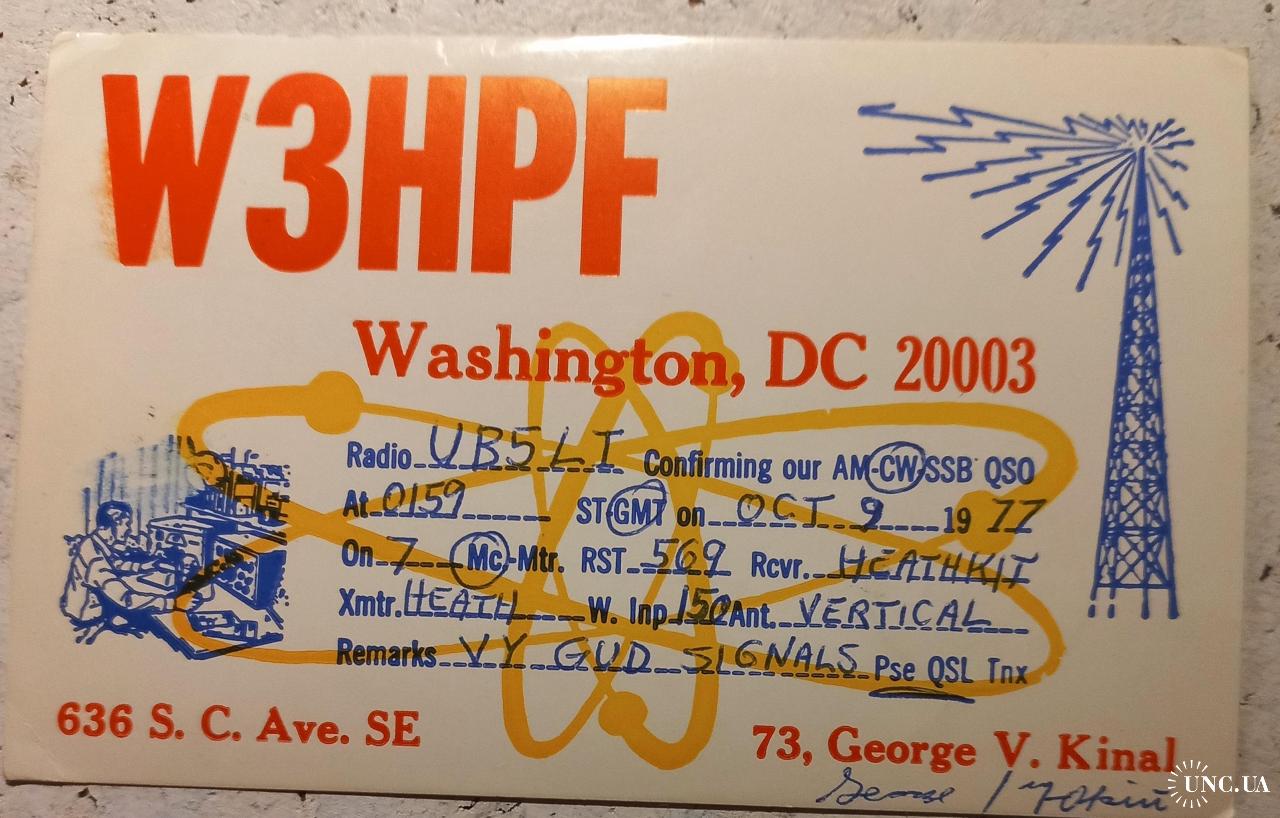 W3HPF
Washington, DC 20003
Radio UB5LI Confirming our AM-CW-SSB QSO
At 0159 ST-GMT on OCT 9 1977
On 7 Mc-Mtr. RST 569 Rcvr. HEATHKIT
Xmtr. HEATH W. Inp 150 Ant. VERTICAL
Remarks VY GUD SIGNALS Pse QSL Tnx
636 S. C. Ave. SE
73, George V. Kinal
George V Kinal
UNC.UA